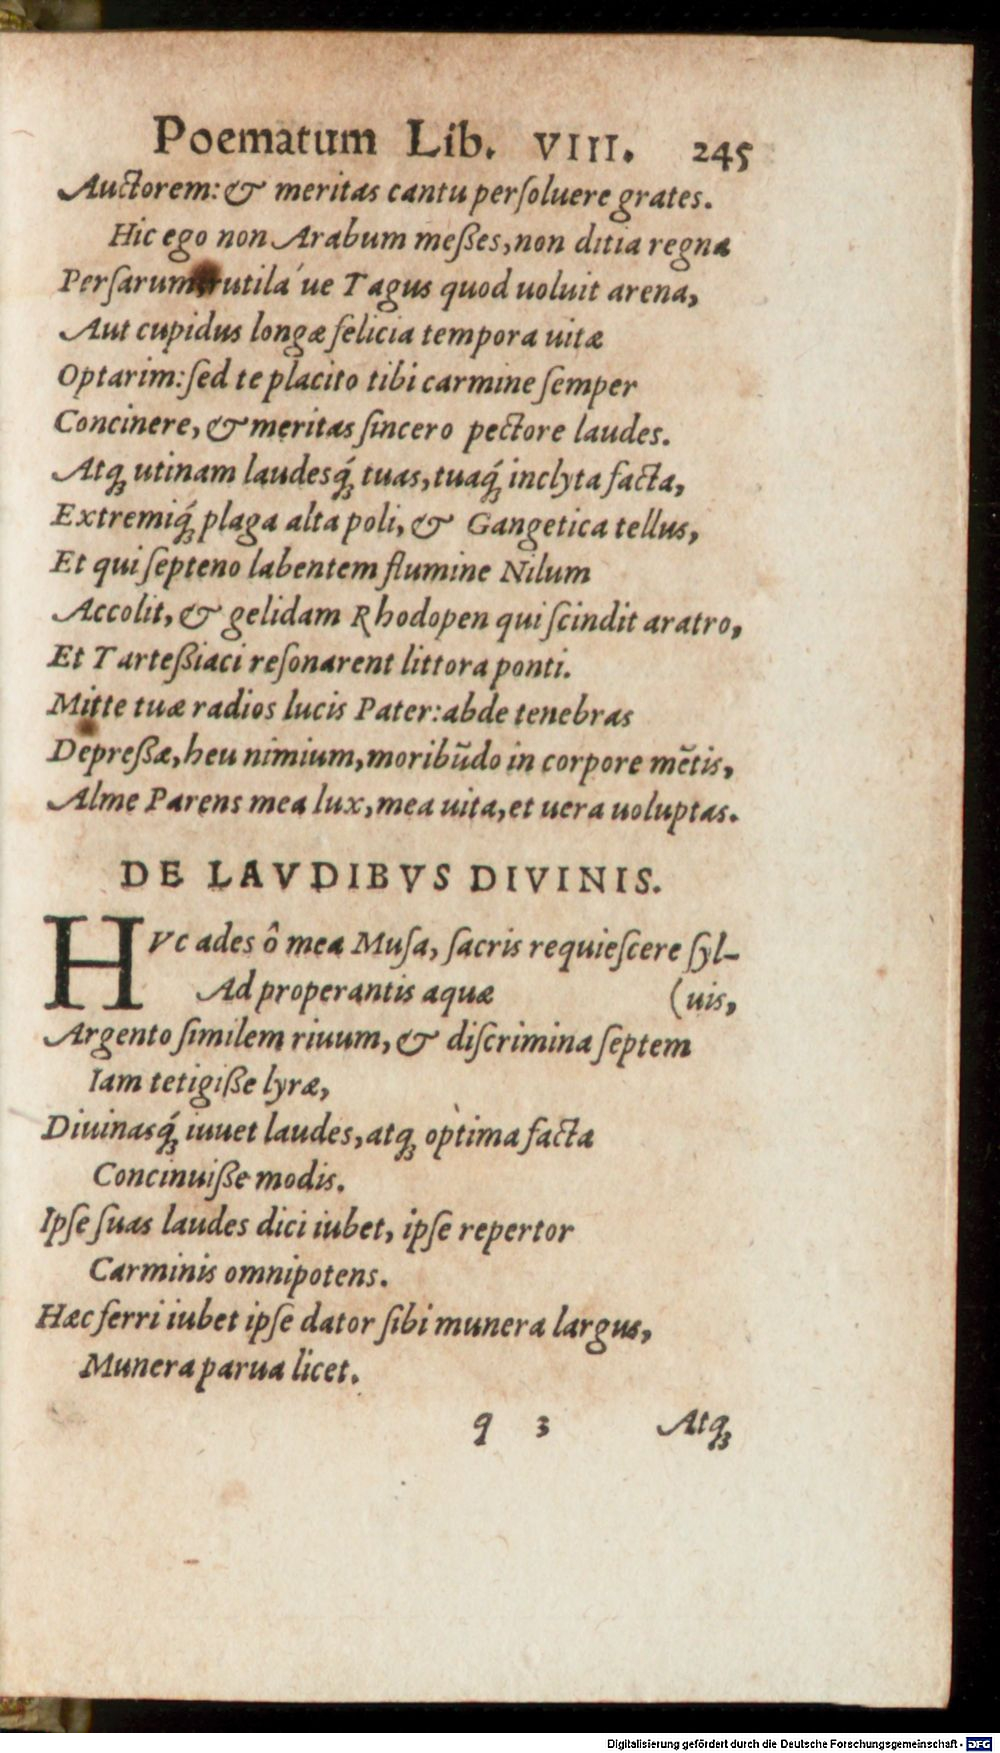 Poematum Lib. VIII. 245
Auctorem: & meritas cantu perſoluere grates.
Hic ego non Arabum meßes, non ditia regna
Perſarum rutilá ue Tagus quod uoluit arena,
Aut cupidus longæ felicia tempora uitæ
Optarim: ſed te placito tibi carmine ſemper
Concinere, & meritas ſincero pectore laudes.
Atq̨ utinam laudesq́; tuas, tuaq́; inclyta facta,
Extremiq́; plaga alta poli, & Gangetica tellus,
Et qui ſepteno labentem flumine Nilum
Accolit, & gelidam Rhodopen qui ſcindit aratro,
Et Tarteßiaci reſonarent littora ponti.
Mitte tuæ radios lucis Pater: abde tenebras
Depreßæ, heu nimium, moribūdo in corpore mētis,
Alme Parens mea lux, mea uita, et uera uoluptas.
DE LAVDIBVS DIVINIS.
HVc ades ô mea Muſa, ſacris requieſcere ſyl-
Ad properantis aquæ (uis,
Argento ſimilem riuum, & diſcrimina ſeptem
Iam tetigiße lyræ,
Diuinasq́; iuuet laudes, atq̨ optima facta
Concinuiße modis.
Ipſe ſuas laudes dici iubet, ipſe repertor
Carminis omnipotens.
Hæc ferri iubet ipſe dator ſibi munera largus,
Munera parua licet.
q 3 Atq̨
Digitalisierung gefördert durch die Deutsche Forschungsgemeinschaft - DFG